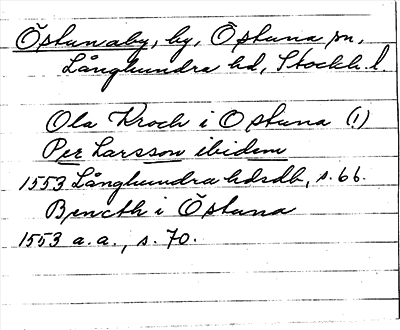 Östunaby, by, Östuna sn,
Långhundra hd, Stockh. l.
Ola Kroch i Ostuna (1)
Per Larsson ibidem
1553 Långhundra hdsdb, s. 66.
Bencth i Östuna
1553 a.a., s. 70.